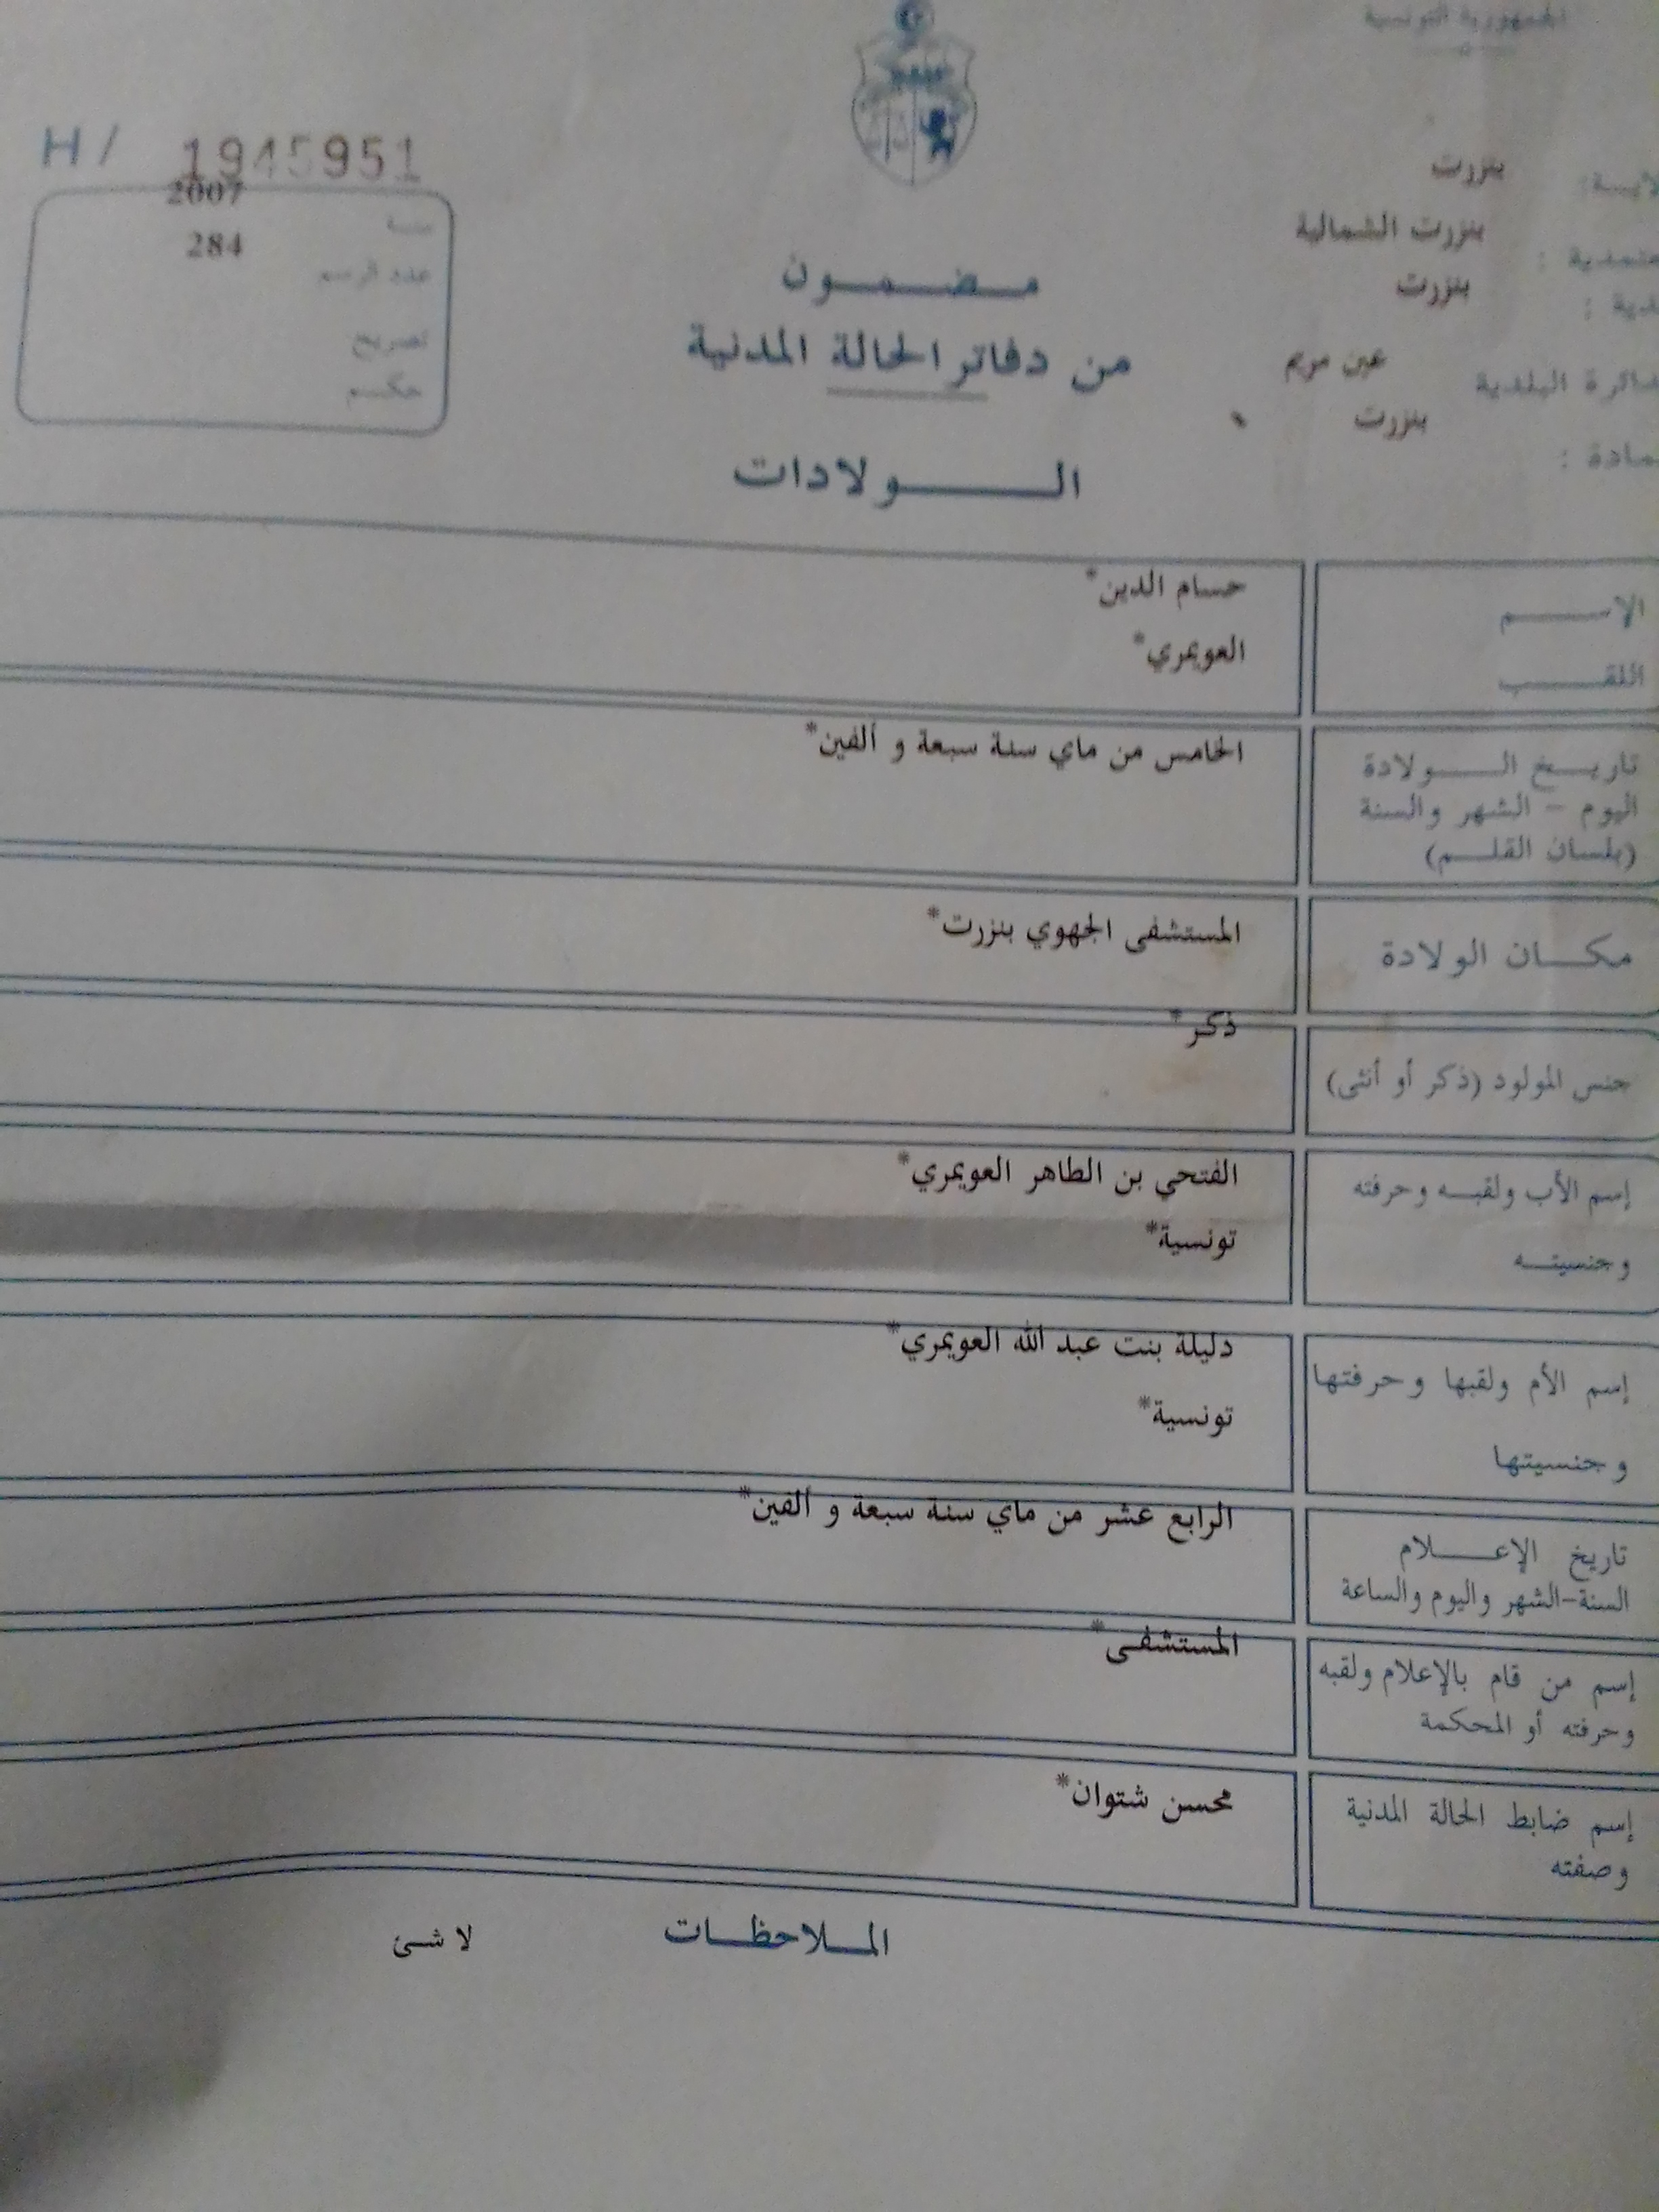 الجمهورية التونسية
H / 1945951
2007
سنة
284
عدد الرسم
تصريح
حكم
بنزرت
بنزرت الشمالية
بنزرت
عين مريم
بنزرت
مضمون
من دفاتر الحالة المدنية
الولادات
الاسم حسام الدين*
اللقب العويمري*
تاريخ الولادة الخامس من ماي سنة سبعة و ألفين*
اليوم - الشهر والسنة
(بلسان القلم)
مكان الولادة المستشفى الجهوي بنزرت*
جنس المولود (ذكر أو أنثى) ذكر*
إسم الأب ولقبه وحرفته الفتحي بن الطاهر العويمري*
وجنسيته تونسية*
إسم الأم ولقبها وحرفتها دليلة بنت عبد الله العويمري*
وجنسيتها تونسية*
تاريخ الإعلام الرابع عشر من ماي سنة سبعة و ألفين*
السنة-الشهر واليوم والساعة
إسم من قام بالإعلام ولقبه المستشفى*
وحرفته أو المحكمة
إسم ضابط الحالة المدنية محسن شتوان*
وصفته
الملاحظات لا شئ